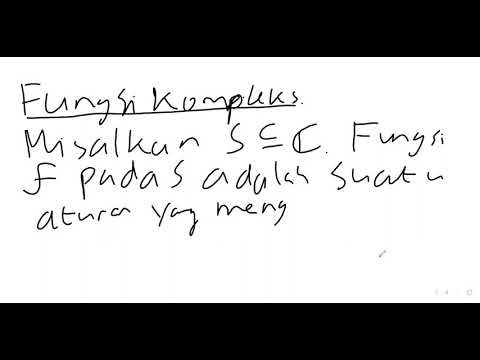 Fungsi Kompleks.
Misalkan S ⊆ ℂ. Fungsi
f pada S adalah suatu
atura yag meng